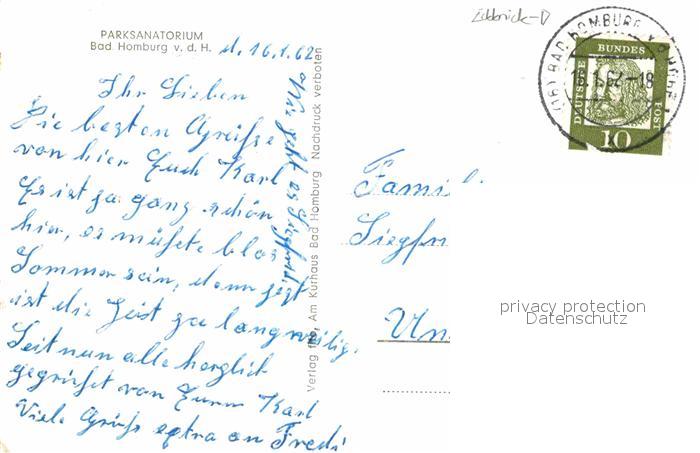 PARKSANATORIUM
Bad Homburg v. d. H.
d. 16.1.62
Ihr Lieben
Die besten Grüße
von hier Euch Karl
Es ist ja ganz schön
hier, es müßte blos
Sommer sein, denn jezt
ist die Zeit ja langweilig.
Seit nun alle herzlich
gegrüßt von Eurem Karl
Viele Grüße extra an Fredi
Was geht es Siegfried
Verlag Am Kurhaus Bad Homburg Nachdruck verboten
Famil
Siegfr
Un
BAD HOMBURG V D HÖHE
16.1.62-18
DEUTSCHE
BUNDES
POST
10
privacy protection
Datenschutz